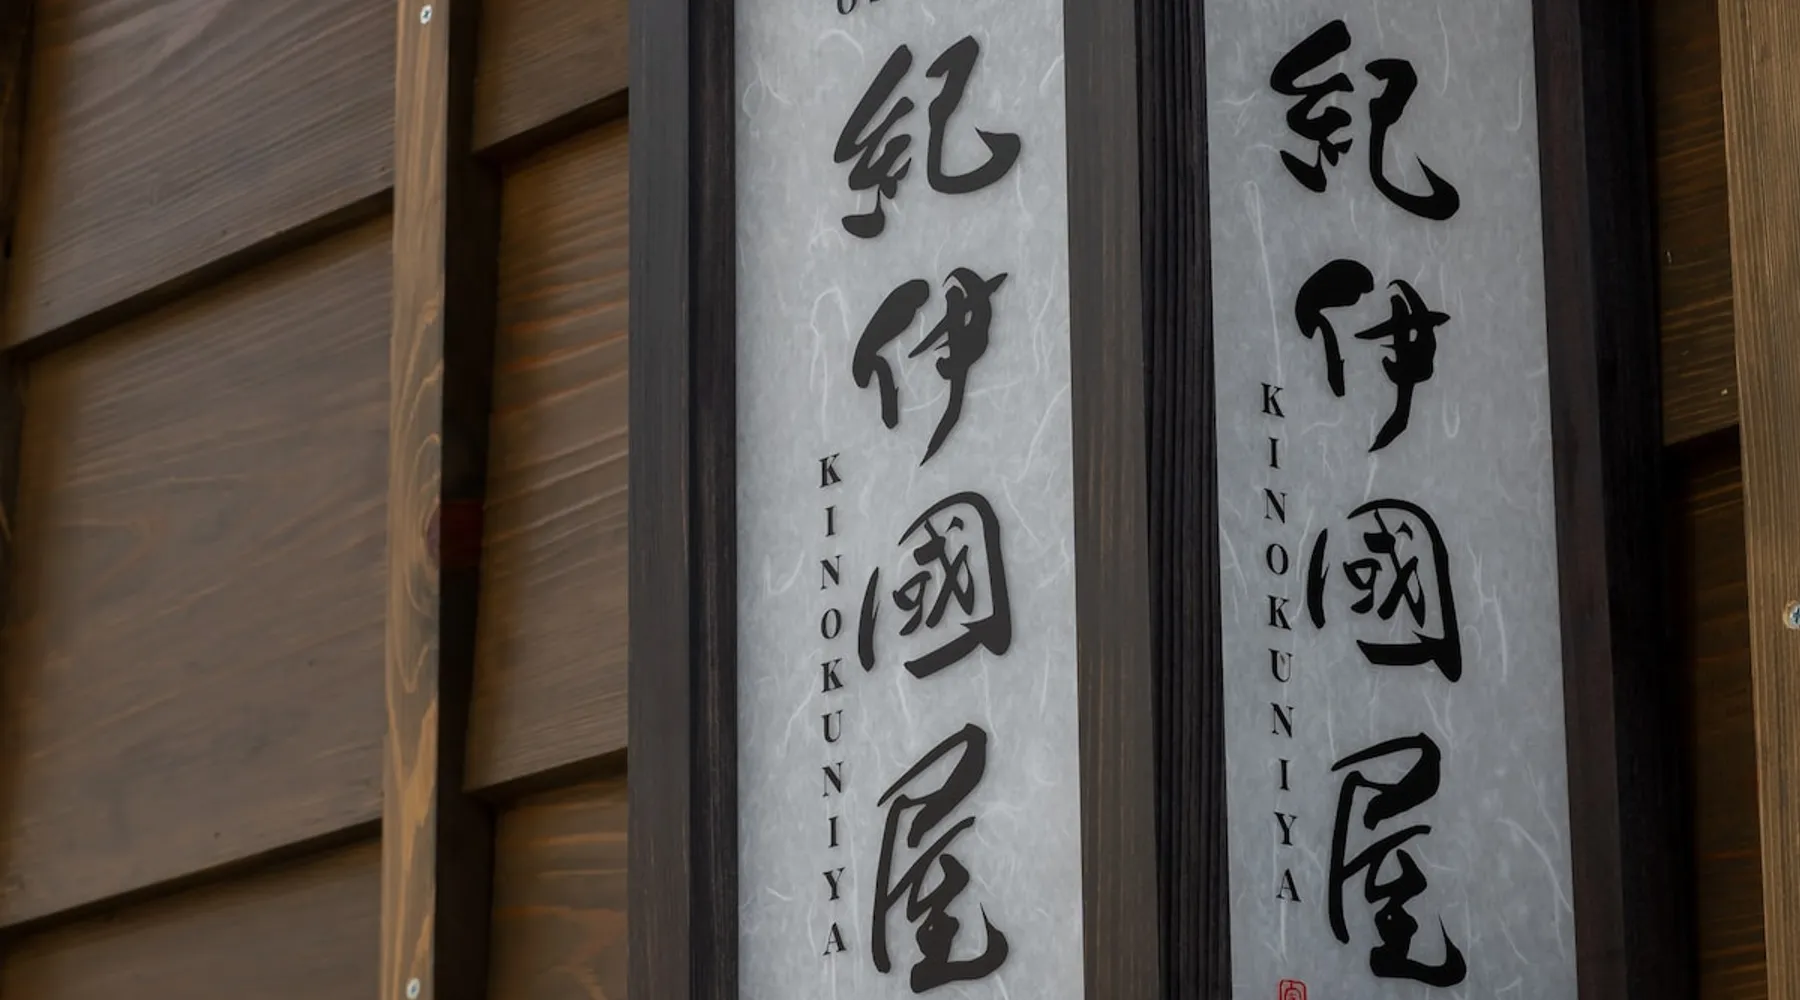 紀伊國屋
KINOKUNIYA
紀伊國屋
KINOKUNIYA